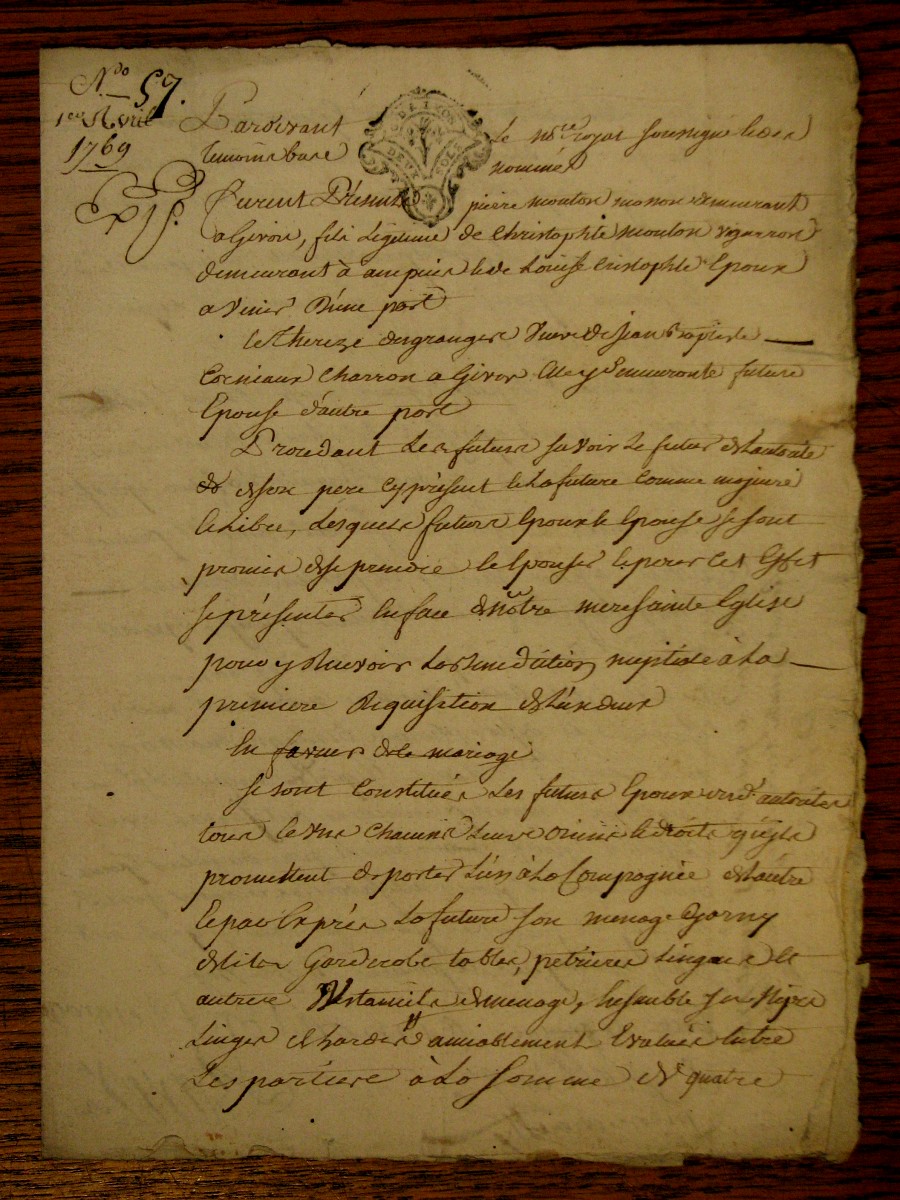 N.o 57.
1er Avril
1769
DE LYON
DEUX SOLS
Pardevant Le no.re Royal soussigné et les
temoins bas nommés
furent Présents pierre mouton macon demeurant
a Givors, fils Légitime de Christophle mouton vigneron
demeurant à ampuis et de Louise Cristophle Epoux
a venir D'une part
et Thereze degranger veuve de jean Baptiste
Charron a Givors et y demeurante future
Epouse d'autre part
Procedant Les futurs savoir Le futur de Lautorité
de son pere cy présent et La future comme majeure
et Libre, Lesquels futurs Epoux et Epouse se sont
promis de se prendre et Epouser et pour cet Effet
se présenter En face de nôtre mere sainte Eglise
pour y Recevoir La Bénédiction nuptiale à La
premiere Requisition de L'un deux
En faveur de ce mariage
se sont Constitués Les futurs Epoux autorités
tous et uns chacuns Leurs et droits qu'ils
promettent de porter L'un à La Compagnie de L'autre
Et par Exprès La future son menage Garny
de Lits Garderobe tables, petrieres Linges et
autres Ustanciles de menage, Ensemble ses
Linges et hardes amiablement Evalués Entre
Les parties à La somme de quatre